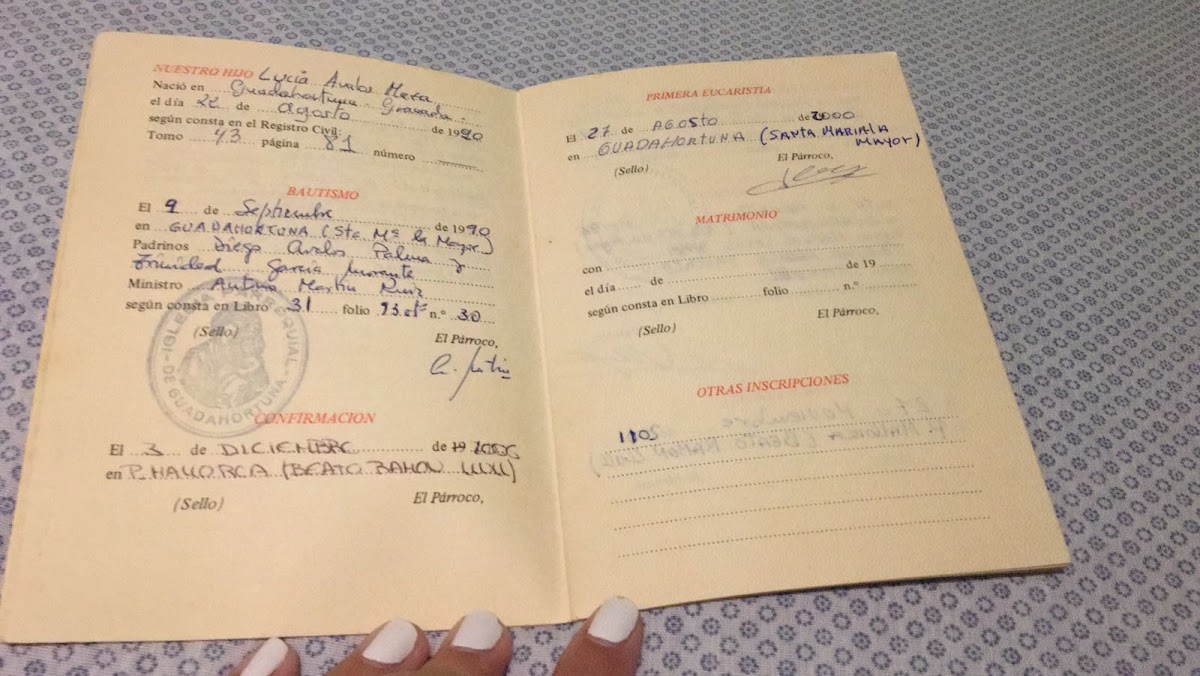 NUESTRO HIJO Lycia Avalos Meza
Nació en Guadahortuna - Granada -
el día 22 de agosto de 1990
según consta en el Registro Civil:
Tomo 43 página 81 número
BAUTISMO
El 9 de Septiembre de 1990
en GUADAHORTUNA (Sta Mª la Mayor)
Padrinos Diego Avalos Palma y
Trinidad García Morante
Ministro Antonio Martín Ruiz
según consta en Libro 31 folio n.º 30
(Sello) El Párroco,
IGLESIA PARROQUIAL - DE GUADAHORTUNA -
CONFIRMACION
El 3 de DICIEMBRE de 19
en P. MALLORCA (BEATO RAMON LLULL)
(Sello) El Párroco,
PRIMERA EUCARISTIA
El 27 de AGOSTO de 2000
en GUADAHORTUNA (SANTA MARIA LA
MAYOR)
(Sello) El Párroco,
MATRIMONIO
con
el día de de 19
según consta en Libro folio n.º
(Sello) El Párroco,
OTRAS INSCRIPCIONES